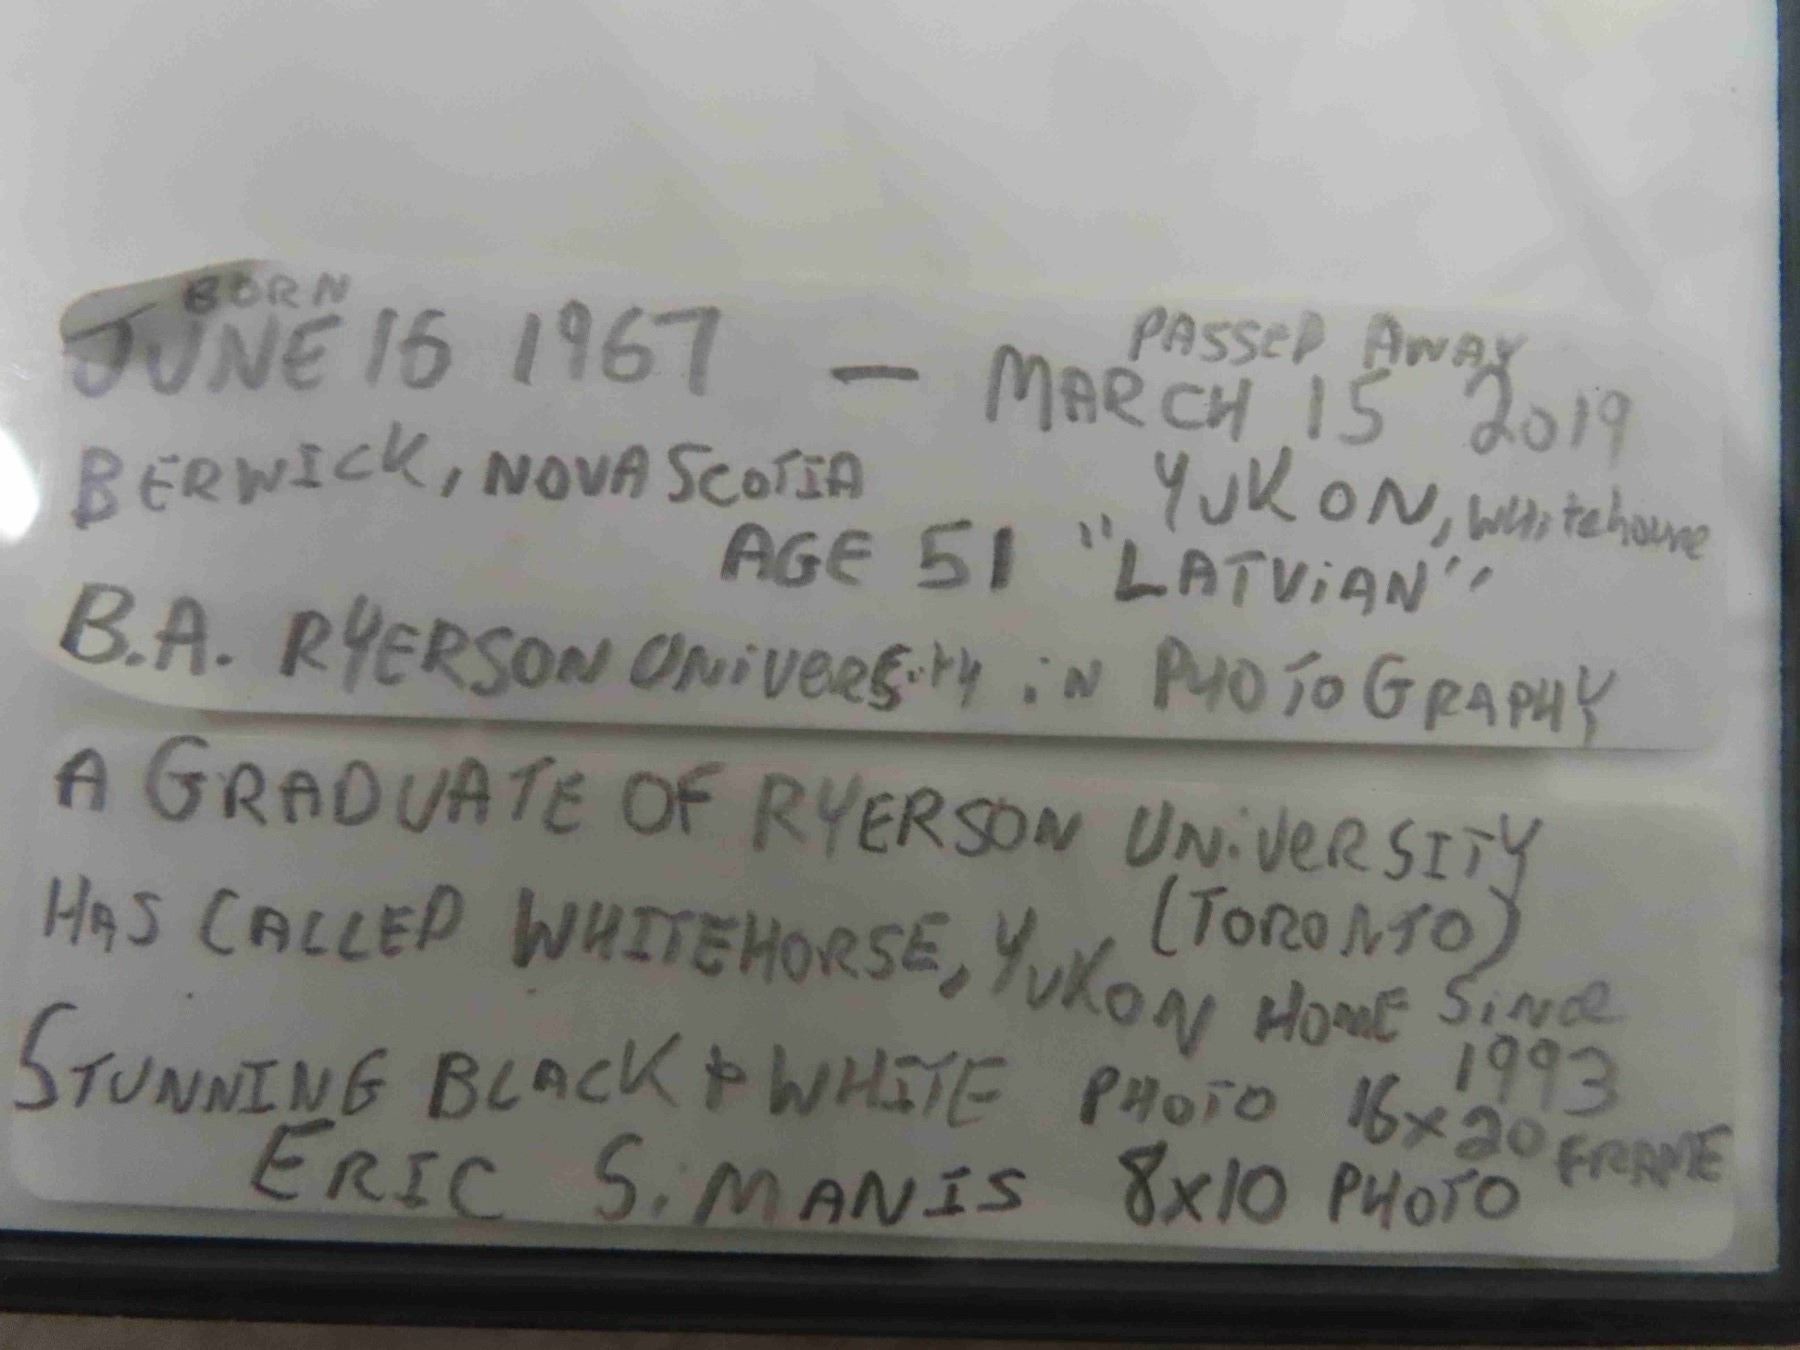 BORN
JUNE 16 1967 — MARCH 15 2019
PASSED AWAY
BERWICK, NOVA SCOTIA
YUKON, Whitehouse
AGE 51 "LATViAN"
B.A. RYERSON UNiVERSity iN PHOTOGRAPHY
A GRADUATE OF RYERSON UNiVeRSITY
(TORONTO)
HAS CALLED WHITEHORSE, YUKON HOME SiNCe
1993
STUNNING BLACK & WHITE PHOTO 16x20 FRAME
ERIC SiMANIS 8x10 PHOTO